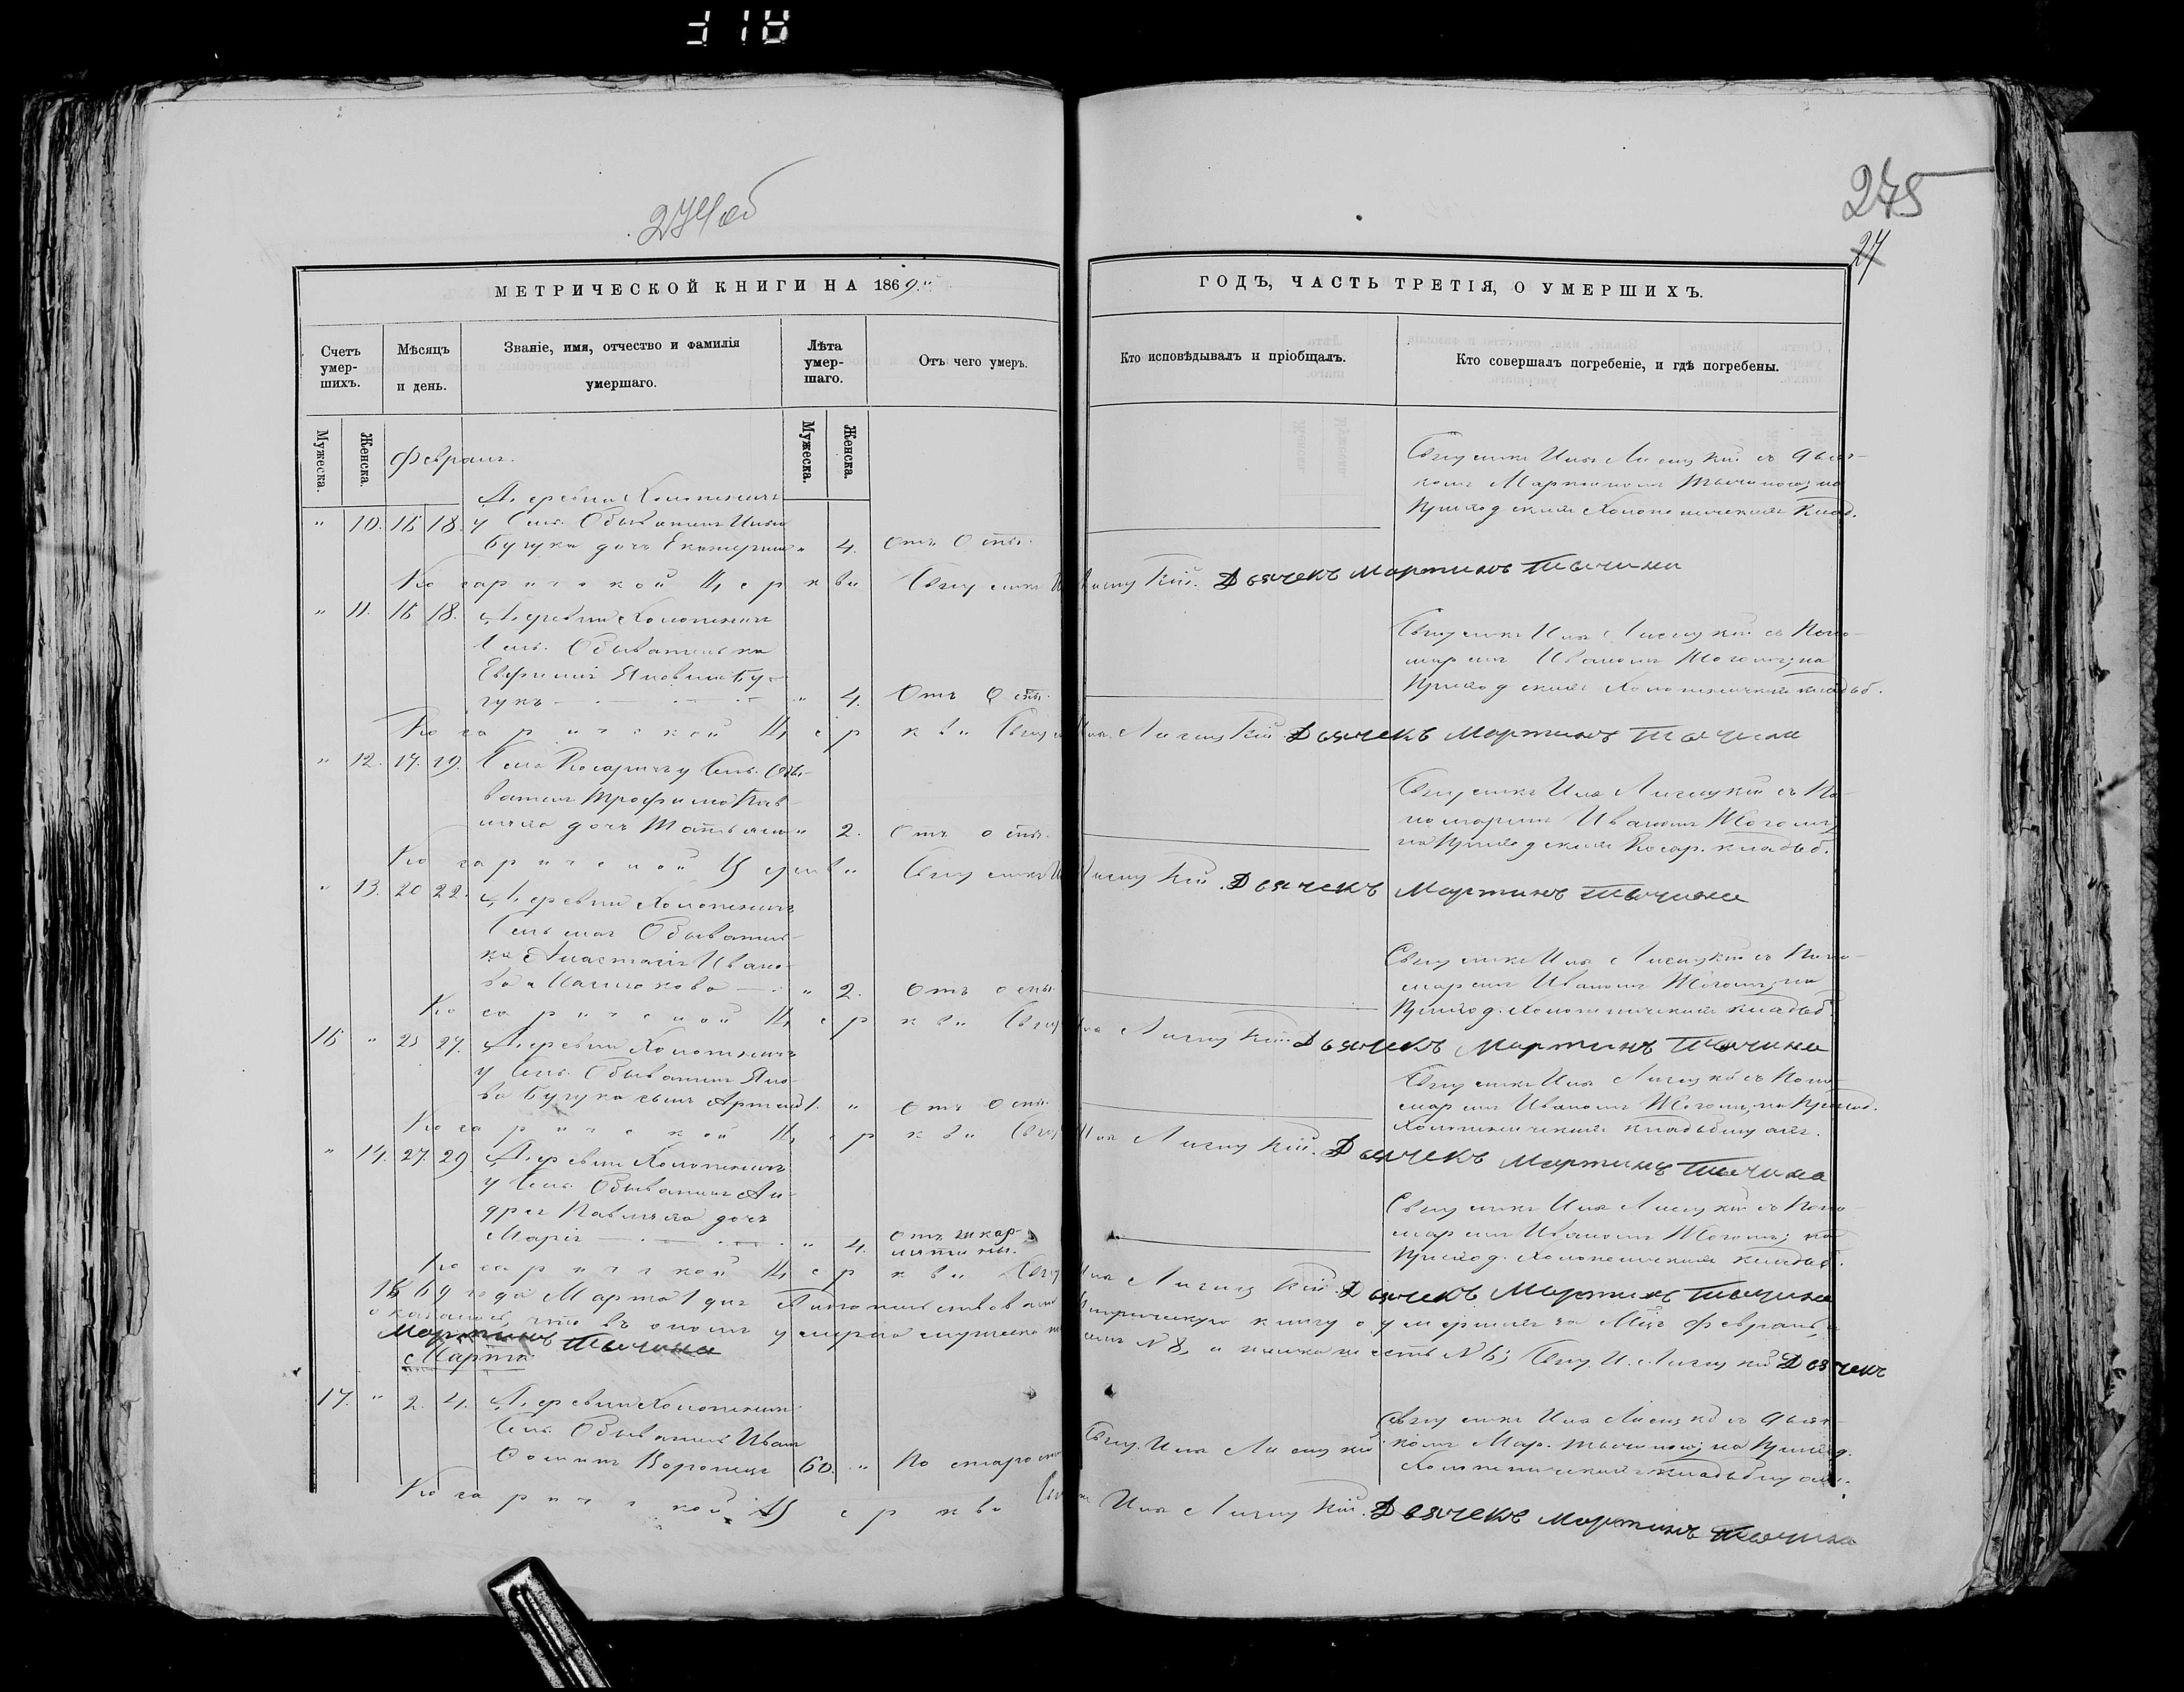 274об
275
27
МЕТРИЧЕСКОЙ КНИГИ НА 1869."
ГОДЪ, ЧАСТЬ ТРЕТІЯ, О УМЕРШИХЪ.
Счетъ умер-шихъ.
Мѣсяцъ и день.
Званіе, имя, отчество и фамилія умершаго.
Лѣта умер-шаго.
Отъ чего умеръ.
Кто исповѣдывалъ и пріобщалъ.
Кто совершалъ погребеніе, и гдѣ погребены.
Мужеска.
Женска.
Мужеска.
Женска.
Февраль.
Деревни Холопеничъ
" 10. 16 18. у Сель. Обывателя Ильи
дочь Екатерина " 4. Отъ Оспы.
Священникъ Илья Лисицкій съ дьяч-
комъ Мартиномъ Тычиною; на
Приходскомъ Холопеничскомъ Клад.
Косаричской Церкви Священникъ И. Лисицкій. Дьячекъ Мартинъ Тычина
" 11. 16 18. Деревни Холопеничъ
Сель. Обывателька
" 4. Отъ Оспы.
Священникъ Илья Лисицкій съ Поно-
маремъ Иваномъ Жоголемъ; на
Приходскомъ Холопеничскомъ кладб.
Косаричской Церкви Свящ. Илья Лисицкій Дьячекъ Мартинъ Тычина
" 12. 17. 19. Села Косаричъ у Сель. Обы-
вателя Трофима
дочь Татьяна " 2. Отъ оспы.
Священникъ Илья Лисицкій съ По-
номаремъ Иваномъ Жоголемъ;
на Приходскомъ Косар. кладб.
Косаричской Церкви Священникъ И. Лисицкій. Дьячекъ Мартинъ Тычина
" 13. 20 22. Деревни Холопеничъ
Сельская Обыватель-
ка Анастасія Ивано-
ва " 2. Отъ оспы.
Священникъ Илья Лисицкій съ Поно-
маремъ Иваномъ Жоголемъ; на
Приход. Холопеничскомъ кладб.
Косаричской Церкви Свящ. Илья Лисицкій. Дьячекъ Мартинъ Тычина
16 " 25 27. Деревни Холопеничъ
у Сель. Обывателя Яко-
ва сынъ 1. " Отъ Оспы.
Священникъ Илья Лисицкій съ Поно-
маремъ Иваномъ Жоголемъ, на Приход.
Холопеничскомъ кладбищѣ.
Косаричской Церкви Свящ. Илья Лисицкій. Дьячекъ Мартинъ Тычина
" 14. 27. 29. Деревни Холопеничъ
у Сель. Обывателя Ан-
дрея дочь
Марія " 4. Отъ скар-
латины.
Священникъ Илья Лисицкій съ Поно-
маремъ Иваномъ Жоголемъ; на
Приход. Холопеничскомъ кладб.
Косаричской Церкви Свящ. Илья Лисицкій. Дьячекъ Мартинъ Тычина
1869 года Марта 1 дня метрическую книгу о умершихъ за Мѣц. Февраль,
оказалось, что въ ономъ умерло мужеска № 8, а женска № 6; Свящ. И. Лисицкій Дьячекъ
Мартинъ Тычина
Мартъ
17. " 2. 4. Деревни Холопеничъ
Сель. Обыватель Иванъ
60. " По старости
Свящ. Илья Лисицкій
Священникъ Илья Лисицкій съ дьяч-
комъ Мар. Тычиною; на Приход.
Холопеничскомъ кладбищѣ.
Косаричской Церкви Свящ. Илья Лисицкій. Дьячекъ Мартинъ Тычина